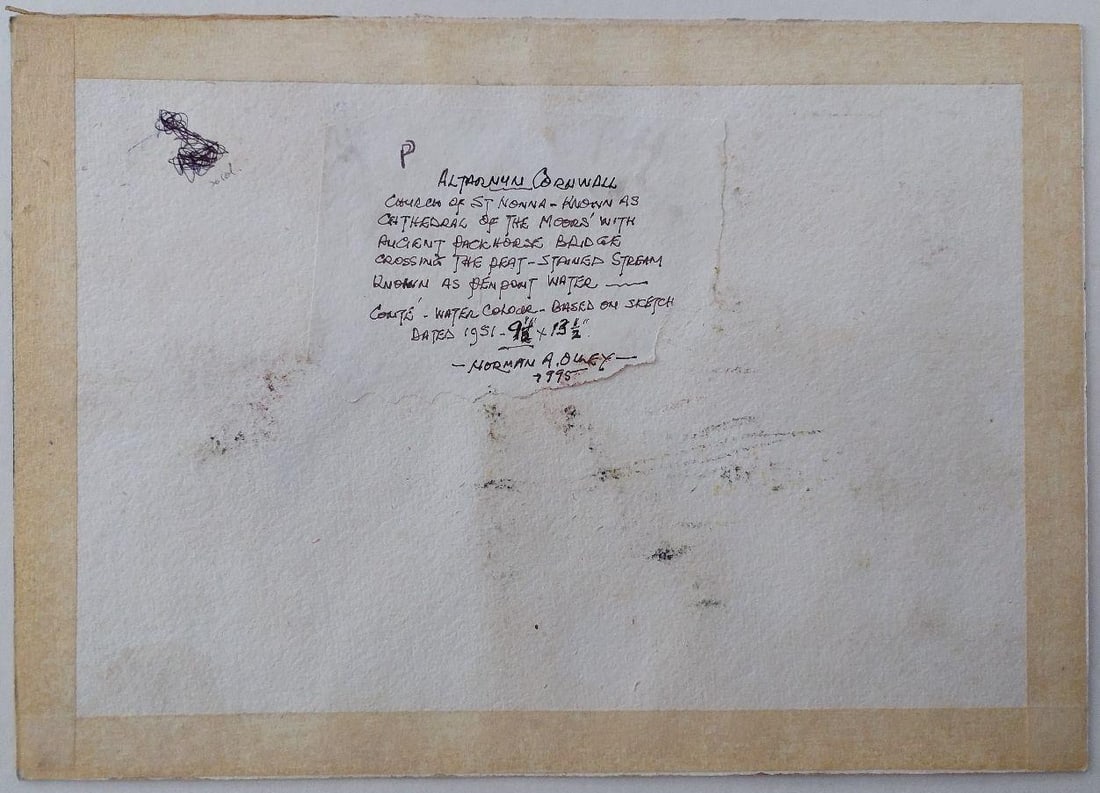 P
ALTARNUN CORNWALL
CHURCH OF ST NONNA - KNOWN AS
CATHEDRAL OF THE MOORS' WITH
ANCIENT PACKHORSE BRIDGE
CROSSING THE PEAT-STAINED STREAM
KNOWN AS PENPONT WATER
CONTÉ - WATER COLOUR - BASED ON SKETCH
DATED 1951 - 9 1/2" x 13 1/2"
- NORMAN A. OLLEY -
1995